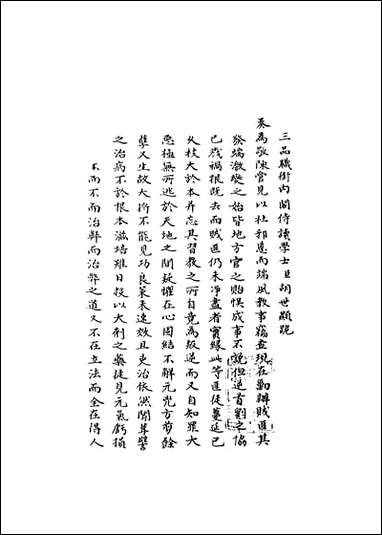 三品職銜內閣侍讀學士臣胡世顯跪
奏為敬陳管見以杜邪慝而端風教事竊查現在勦辦賊匪其
發端激變之始皆地方官之貽悞成事不說但逆首劉之協
已戕禍根既去而賊匪仍未净盡者實緣此等匪徒蔓延已
久枝大於本并忘其習教之所自竟為叛逆而又自知罪大
惡極無所逃於天地之間疑懼在心固結不解元兇方剪餘
孽又生故大兵所不能見功良策未速效且吏治依然闒茸譬
之治病不於根本滋培雖日投以大劑之藥徒見元氣虧損
而不治弊而治弊之道又不在立法而全在得人